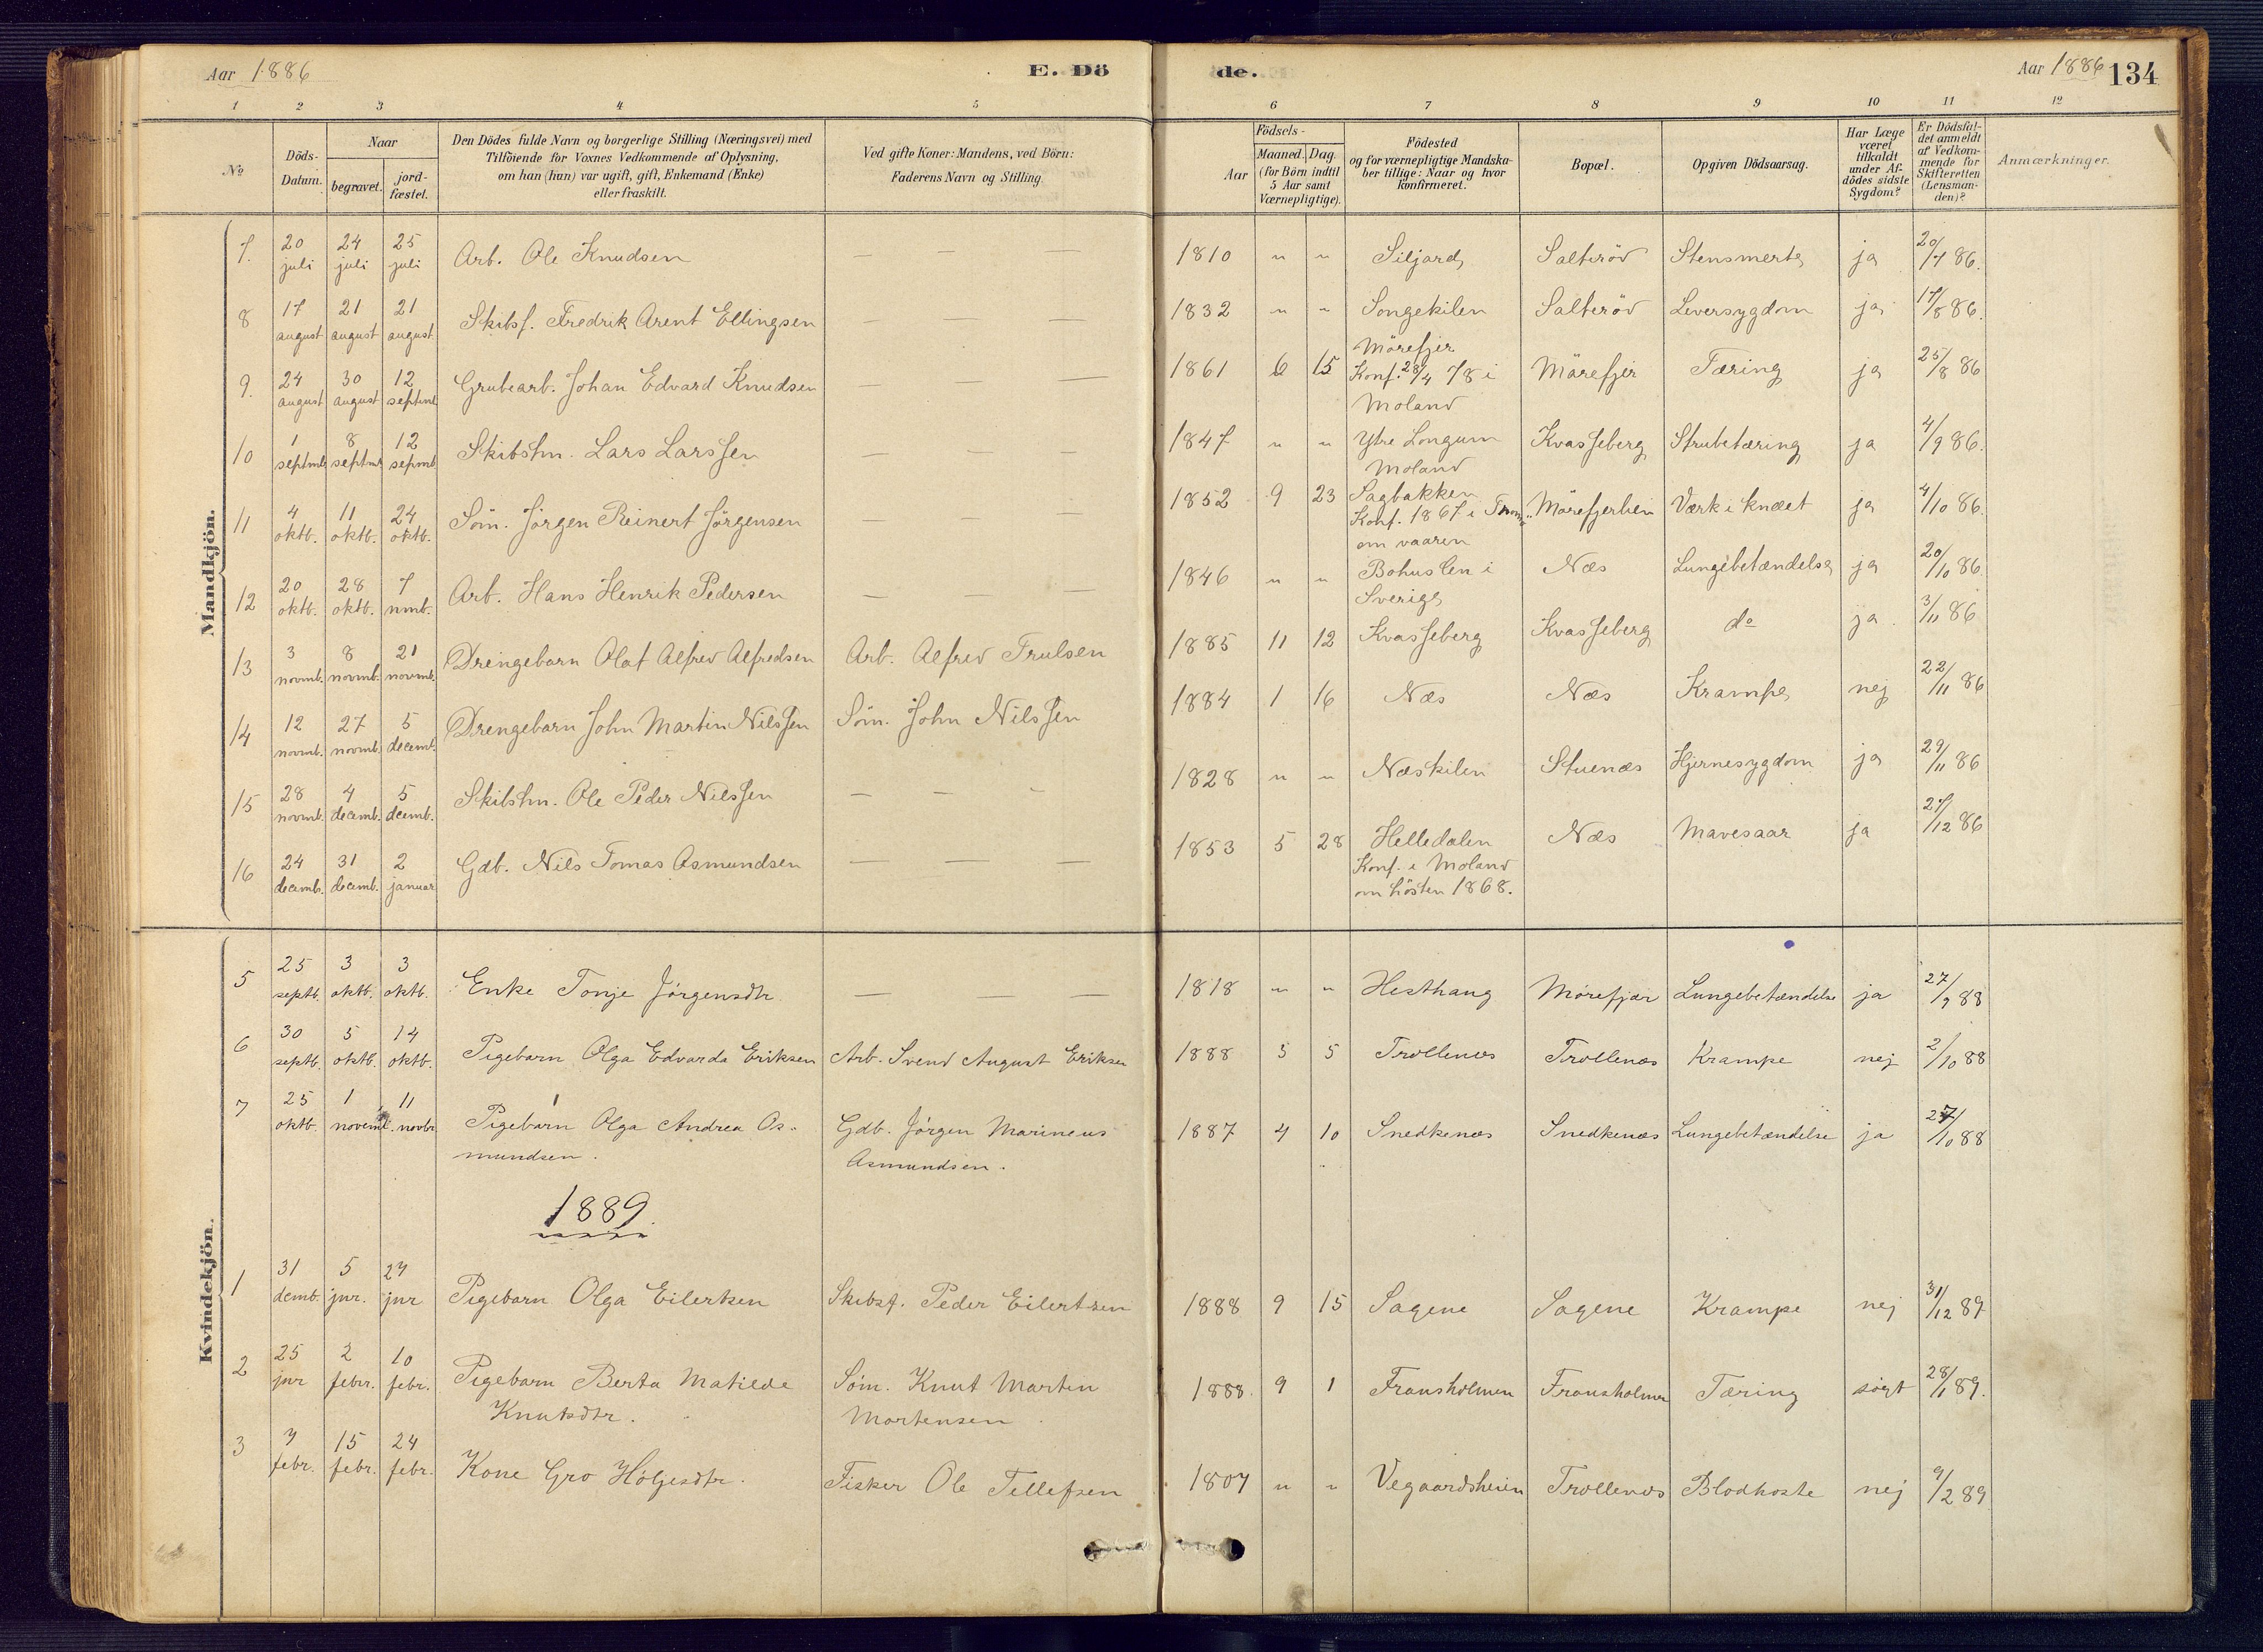 Aar 1886 E. Dö de. Aar 1886 134
1 2 3 4 5 6 7 8 9 10 11 12
No Döds-Datum. Naar begravet. jord-fæstet. Den Dödes fulde Navn og borgerlige Stilling (Næringsvei) med Tilföiende for Voxnes Vedkommende af Oplysning, om han (hun) var ugift, gift, Enkemand (Enke) eller fraskilt. Ved gifte Koner: Mandens, ved Börn: Faderens Navn og Stilling. Födsels- Aar Maaned. Dag. (for Börn indtil 5 Aar samt Værnepligtige). Födested og for værnepligtige Mandskaber tillige: Naar og hvor konfirmeret. Bopæl. Opgiven Dödsaarsag. Har Læge været tilkaldt under Afdödes sidste Sygdom? Er Dödsfaldet anmeldt af Vedkommende for Skifteretten (Lensmanden)? Anmærkninger.
Mandkjön.
7. 20 juli 24 juli 25 juli Arb. Ole Knudsen — — — 1810 " " Siljord Salteröd Stensmerte ja 20/7 86.
8 17 august 21 august 21 august. Skibsf. Fredrik Arent Ellingsen — — — 1832 " " Songekilen Salteröd Leversygdom ja 17/8 86.
9. 24 august 30 august 12 septmb Grubearb. Johan Edvard Knudsen — — 1861 6 15 Mörefjer Konf. 28/4 78 i Moland Mörefjer Tæring ja 25/8 86
10 1 septmb 8 septmb 12 sepmb Skibstm. Lars Larssen — — — 1847 " " Ytre Longum Moland Kvasseberg Strubetæring ja 4/9 86.
11 4 oktb. 11 oktb. 24 oktb. Söm. Jörgen Reinert Jörgensen — — — 1852 9 23 Sagbakken Konf. 1867 i Tromö om vaaren Mörefjerhei Værk i knæet ja 4/10 86.
12 20 oktb. 28 oktb. 7 nmb. Arb. Hans Henrik Pedersen — — — 1846 " " Bohuslen i Sverige Næs Lungebetændelse ja 20/10 86
13 3 novmb. 8 novmb. 21 novmb. Drengebarn Olaf Alfred Alfredsen Arb. Alfred Trulsen 1885 11 12 Kvasseberg Kvasseberg do ja 3/11 86
14 12 novmb. 27 novmb. 5 decemb. Drengebarn John Martin Nilssen Söm. John Nilssen 1884 1 16 Næs Næs Krampe nej 22/11 86
15 28 novmb. 4 decemb. 5 decmb. Skibstm. Ole Peder Nilssen — — — 1828 " " Næskilen Stuenæs Hjernesygdom ja 29/11 86
16 24 decemb. 31 decemb. 2 januar Gdb. Nils Tomas Asmundsen — — — 1853 5 28 Helledalen Konf. i Moland om hösten 1868. Næs Mavesaar ja 27/12 86
Kvindekjön.
5 25 septb. 3 oktb. 3 oktb. Enke Tonje Jörgensdtr — — — 1818 " " Hesthang Mörefjær Lungebetændelse ja 27/9 88
6 30 septb. 5 oktb. 14 oktb. Pigebarn Olga Edvarda Eriksen Arb. Svend August Eriksen 1888 5 5 Trollenæs Trollenæs Krampe nej 2/10 88
7 25 oktb. 1 novemb. 11 novbr Pigebarn Olga Andrea As-
mundsen. Gdb. Jörgen Marineus Asmundsen. 1887 4 10 Snedkenæs Snedkenæs Lungebetændelse ja 27/10 88
1889.
1 31 demb. 5 jnr. 27 jnr Pigebarn Olga Eilertsen Skibsf. Peder Eilertsen 1888 9 15 Sagene Sagene Krampe nej 31/12 89
2 25 jnr 2 febr. 10 febr. Pigebarn Berta Matilde Knutsdtr. Söm. Knut Marten Mortensen 1888. 9 1 Fransholmen Fransholmen Tæring sögt 28/1 89.
3 7 febr. 15 febr. 24 febr. Kone Gro Höljesdtr. Fisker Ole Tellefsen 1807 " " Vegaardsheien Trollenæs Blodhoste nej 9/2 89